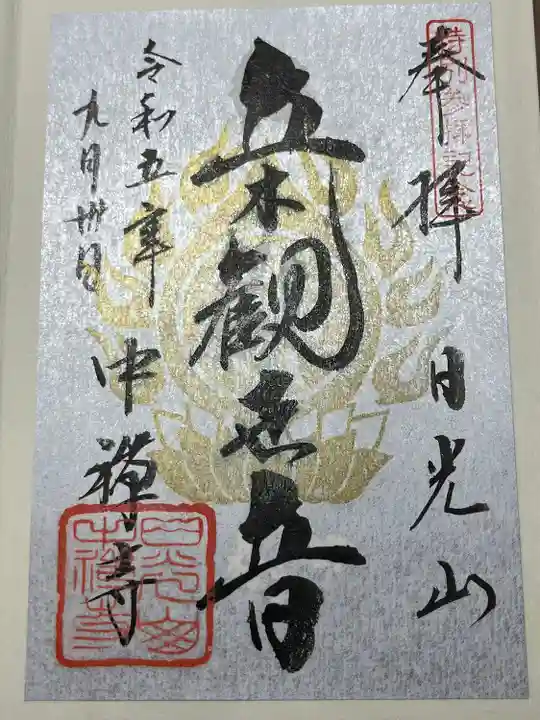 奉拝
日光山
特別参拝記念
立木観世音
令和五年
九月卅日
中禅寺
日光山
中禅寺